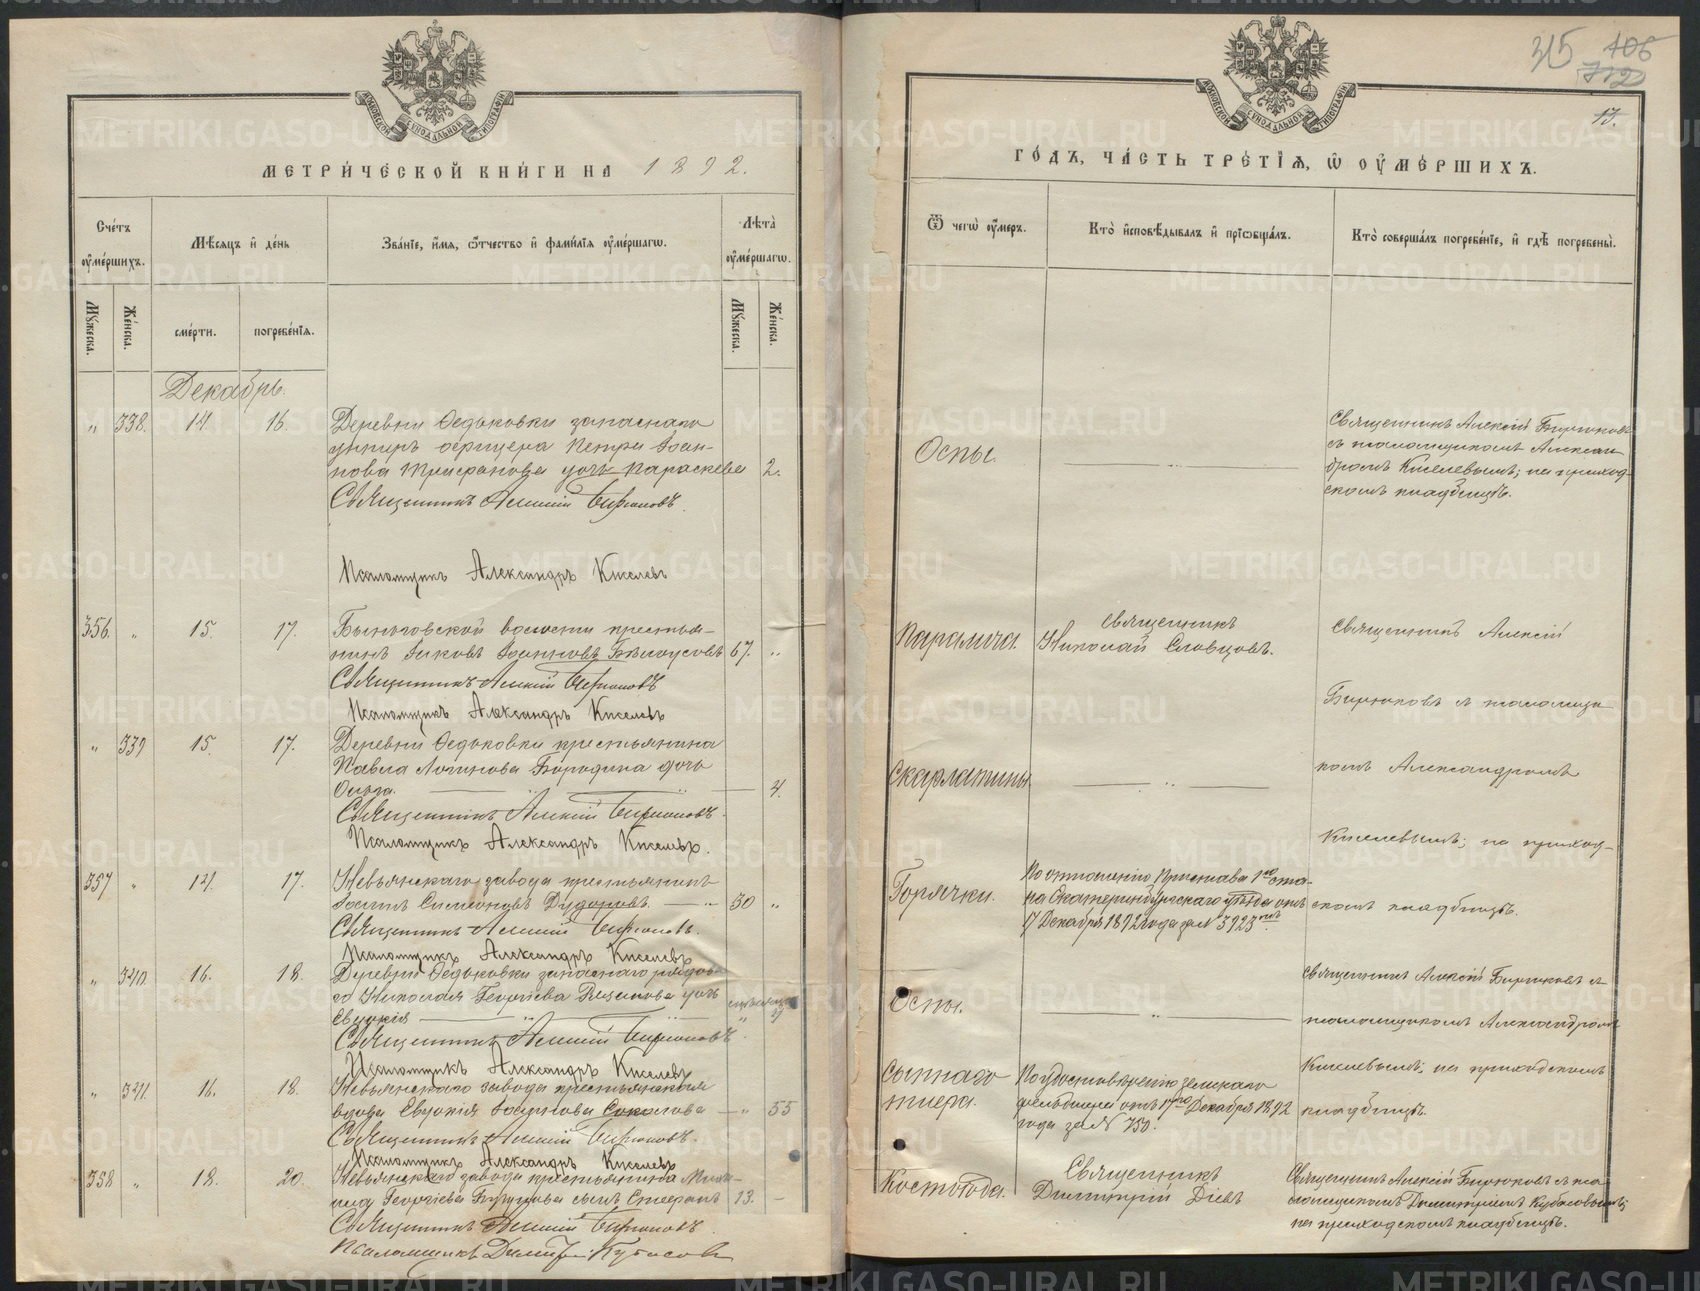 МЕТРИ́ЧЕСКОЙ КНИ́ГИ НА 1892.
Сче́тъ ᲂу҆ме́ршихъ.
Мѣ́сяцъ и҆ де́нь
Зва́нїе, и҆́мя, ѻ҆́тчество и҆ фами́лїя ᲂу҆ме́ршагѡ.
Лѣта̀ ᲂу҆ме́ршагѡ.
Му́жеска.
Же́нска.
сме́рти.
погребе́нїѧ.
Му́жеска.
Же́нска.
Декабрь.
„ 338. 14. 16. Деревни Ѳедьковки запаснаго
унтеръ офицера Петра Іоан-
нова Трифонова дочь Параскева 2.
Священникъ Алексій Бирюковъ.
Псаломщикъ Александръ Киселевъ
356. „ 15. 17. Быньговской волости крестья-
нинъ Іаковъ Іоанновъ Бѣлоусовъ 67. „
Священникъ Алексій Бирюковъ
Псаломщикъ Александръ Киселевъ
„ 339 15. 17. Деревни Ѳедьковки крестьянина
Павла Логинова Бородина дочь
Ольга. 4.
Священникъ Алексій Бирюковъ.
Псаломщикъ Александръ Киселевъ.
357 „ 14. 17. Невьянскаго завода крестьянинъ
Симеоновъ Дудоровъ. 30 „
Священникъ Алексій Бирюковъ.
Псаломщикъ Александръ Киселевъ
„ 340. 16. 18. Деревни Ѳедьковки запаснаго рядов-
го Николая Георгіева дочь
Евдокія
Священникъ Алексій Бирюковъ.
Псаломщикъ Александръ Киселевъ
„ 341. 16. 18. Невьянскаго завода крестьянская
вдова Евдокія Соколова „ 55
Священникъ Алексій Бирюковъ.
Псаломщикъ Александръ Киселевъ
358 „ 18. 20. Невьянскаго завода крестьянина Миха-
ила Георгіева сынъ 13. –
Священникъ Алексій Бирюковъ.
Псаломщикъ Димитрій Кубасовъ
315 406
17.
ГО́ДЪ, ЧА́СТЬ ТРЕ́ТЇѦ, Ѽ ОУ҆МЕ́РШИХЪ.
Ѿ чегѡ̀ ᲂу҆́меръ.
Кто̀ и҆сповѣ́дывалъ и҆ прїѡбща́лъ.
Кто̀ соверша́лъ погребе́нїе, и҆ гдѣ̀ погребены̀.
Оспы.
Священникъ Алексій Бирюковъ
съ псаломщикомъ Алексан-
дромъ Киселевымъ; на приход-
скомъ кладбищѣ.
Паралича.
Священникъ
Николай Словцовъ.
Священникъ Алексій
Бирюковъ съ псаломщи
комъ Александромъ
Киселевымъ; на приход-
скомъ кладбищѣ.
Скарлатины
Горячки.
По отношенію Пристава 1го ста-
на Екатеринбургскаго уѣзда отъ
17 Декабря 1892 года за № 3923
Оспы.
Священникъ Алексій Бирюковъ съ
псаломщикомъ Александромъ
Киселевымъ; на приходскомъ
кладбищѣ.
Сыпнаго
тифа.
По удостовѣренію земскаго
фельдшера отъ 17го Декабря 1892
года за № 750.
Костоѣда.
Священникъ
Димитрій Діевъ
Священникъ Алексій Бирюковъ съ пса
ломщикомъ Димитріемъ Кубасовымъ;
на приходскомъ кладбищѣ.
METRIKI.GASO-URAL.RU